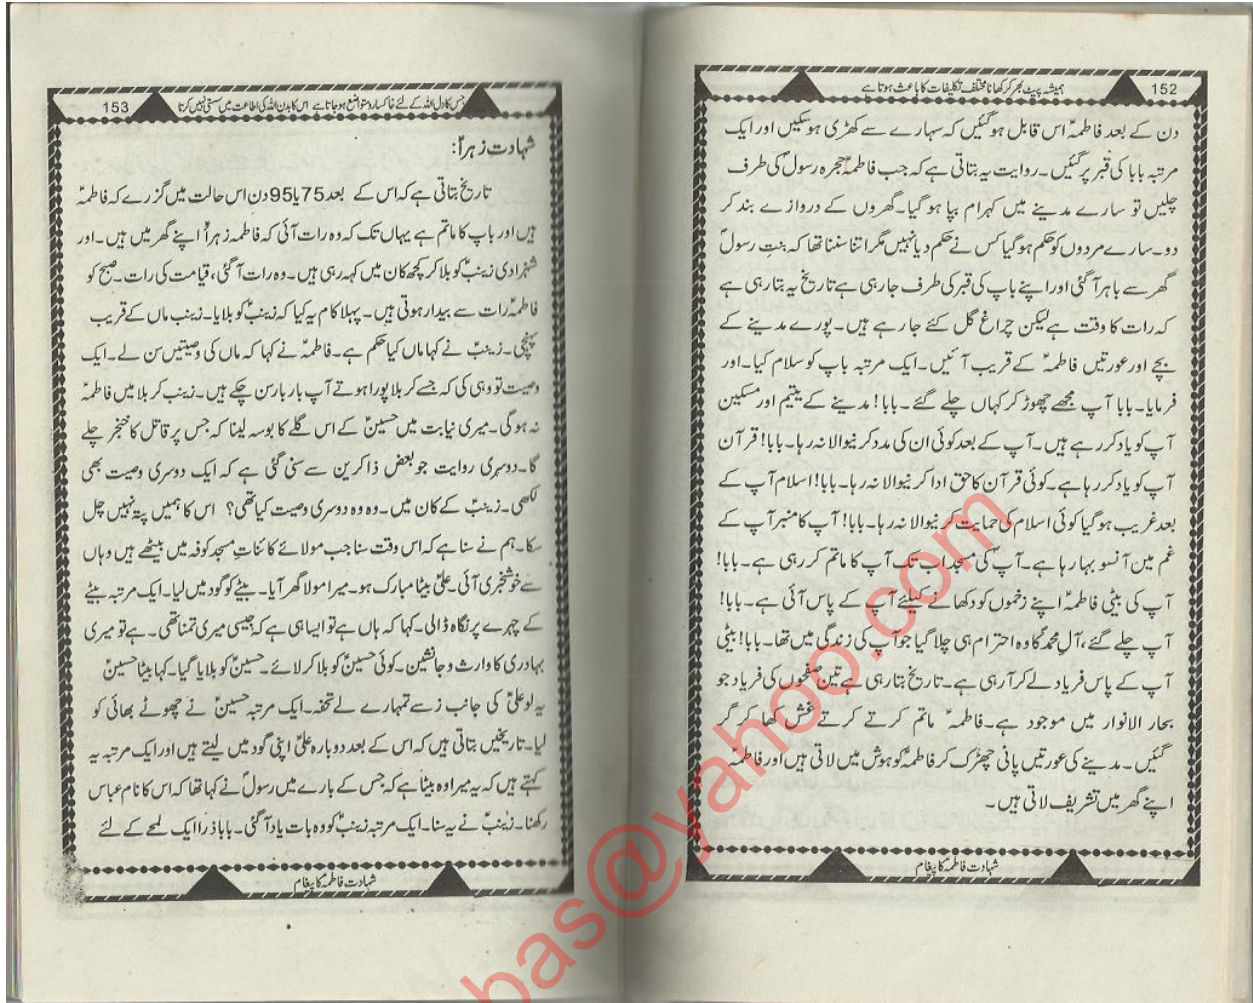 152
ہمیشہ پیٹ بھر کر کھانا مختلف تکلیفات کا باعث ہوتا ہے
دن کے بعد فاطمہؑ اس قابل ہو گئیں کہ سہارے سے کھڑی ہو سکیں اور ایک
مرتبہ بابا کی قبر پر گئیں۔ روایت یہ بتاتی ہے کہ جب فاطمہؑ حجرہ رسولؐ کی طرف
چلیں تو سارے مدینے میں کہرام بپا ہو گیا۔ گھروں کے دروازے بند کر
دو۔ سارے مردوں کو حکم ہو گیا کس نے حکم دیا نہیں مگر اتنا سننا تھا کہ بنتِ رسولؐ
گھر سے باہر آ گئی اور اپنے باپ کی قبر کی طرف جا رہی ہے تاریخ یہ بتا رہی ہے
کہ رات کا وقت ہے لیکن چراغ گل کئے جا رہے ہیں۔ پورے مدینے کے
بچے اور عورتیں فاطمہؑ کے قریب آئیں۔ ایک مرتبہ باپ کو سلام کیا۔ اور
فرمایا۔ بابا آپ مجھے چھوڑ کر کہاں چلے گئے۔ بابا! مدینے کے یتیم اور مسکین
آپ کو یاد کر رہے ہیں۔ آپ کے بعد کوئی ان کی مدد کرنیوالا نہ رہا۔ بابا! قرآن
آپ کو یاد کر رہا ہے۔ کوئی قرآن کا حق ادا کرنیوالا نہ رہا۔ بابا! اسلام آپ کے
بعد غریب ہو گیا کوئی اسلام کی حمایت کرنیوالا نہ رہا۔ بابا! آپ کا منبر آپ کے
غم میں آنسو بہا رہا ہے۔ آپؐ کی مسجد اب تک آپ کا ماتم کر رہی ہے۔ بابا!
آپ کی بیٹی فاطمہؑ اپنے زخموں کو دکھانے کیلئے آپ کے پاس آئی ہے۔ بابا!
آپ چلے گئے، آلِ محمدؐ کا وہ احترام ہی چلا گیا جو آپ کی زندگی میں تھا۔ بابا! بیٹی
آپ کے پاس فریاد لے کر آ رہی ہے۔ تاریخ بتا رہی ہے تین صفحوں کی فریاد جو
بحار الانوار میں موجود ہے۔ فاطمہؑ ماتم کرتے کرتے غش کھا کر گر
گئیں۔ مدینے کی عورتیں پانی چھڑک کر فاطمہؑ کو ہوش میں لاتی ہیں اور فاطمہؑ
اپنے گھر میں تشریف لاتی ہیں۔
شہادت فاطمہؑ کا پیغام
جس کا دل اللہ کے لئے خاکسار و متواضع ہو جاتا ہے اس کا بدن اللہ کی اطاعت میں سستی نہیں کرتا
153
شہادت زہراؑ:
تاریخ بتاتی ہے کہ اس کے بعد 75 یا 95 دن اس حالت میں گزرے کہ فاطمہؑ
ہیں اور باپ کا ماتم ہے یہاں تک کہ وہ رات آئی کہ فاطمہ زہراؑ اپنے گھر میں ہیں۔ اور
شہزادی زینبؑ کو بلا کر کچھ کان میں کہہ رہی ہیں۔ وہ رات آ گئی، قیامت کی رات۔ صبح کو
فاطمہؑ رات سے بیدار ہوتی ہیں۔ پہلا کام یہ کیا کہ زینبؑ کو بلایا۔ زینب ماں کے قریب
پہنچی۔ زینبؑ نے کہا ماں کیا حکم ہے۔ فاطمہؑ نے کہا کہ ماں کی وصیتیں سن لے۔ ایک
وصیت تو وہی کی کہ جسے کربلا پورا ہوتے آپ بار بار سن چکے ہیں۔ زینب کربلا میں فاطمہؑ
نہ ہوگی۔ میری نیابت میں حسینؑ کے اس گلے کا بوسہ لینا کہ جس پر قاتل کا خنجر چلے
گا۔ دوسری روایت جو بعض ذاکرین سے سنی گئی ہے کہ ایک دوسری وصیت بھی
لکھی۔ زینبؑ کے کان میں۔ وہ وہ دوسری وصیت کیا تھی؟ اس کا ہمیں پتہ نہیں چل
سکا۔ ہم نے سنا ہے کہ اس وقت سنا جب مولائے کائنات مسجد کوفہ میں بیٹھے ہیں وہاں
سے خوشخبری آئی۔ علیؑ بیٹا مبارک ہو۔ میرا مولا گھر آیا۔ بیٹے کو گود میں لیا۔ ایک مرتبہ بیٹے
کے چہرے پر نگاہ ڈالی۔ کہا کہ ہاں ہے تو ایسا ہی ہے کہ جیسی میری تمنا تھی۔ ہے تو میری
بہادری کا وارث و جانشین۔ کوئی حسینؑ کو بلا کر لائے۔ حسینؑ کو بلایا گیا۔ کہا بیٹا حسینؑ
یہ لو علیؑ کی جانب زسے تمہارے لے تحفہ۔ ایک مرتبہ حسینؑ نے چھوٹے بھائی کو
لیا۔ تاریخیں بتاتی ہیں کہ اس کے بعد دوبارہ علیؑ اپنی گود میں لیتے ہیں اور ایک مرتبہ یہ
کہتے ہیں کہ یہ میرا وہ بیٹا ہے کہ جس کے بارے میں رسولؐ نے کہا تھا کہ اس کا نام عباس
رکھنا۔ زینبؑ نے یہ سنا۔ ایک مرتبہ زینبؑ کو وہ بات یاد آ گئی۔ بابا ذرا ایک لمحے کے لئے
شہادت فاطمہؑ کا پیغام
bas@yahoo.com